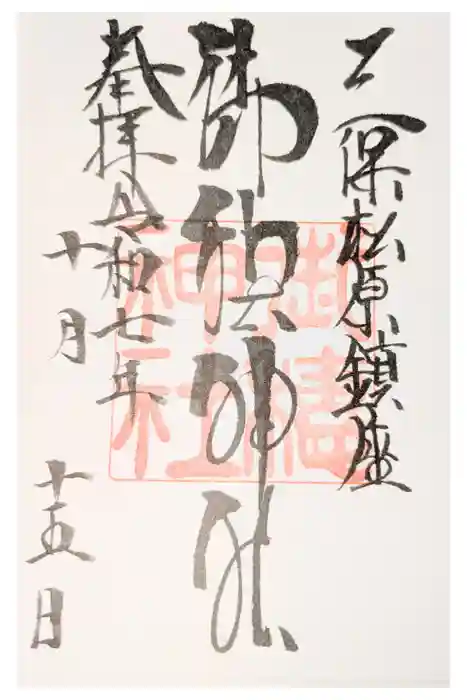 三保松原鎮座
御穂神社
奉拝 令和七年
十月 十五日
御穂
神社